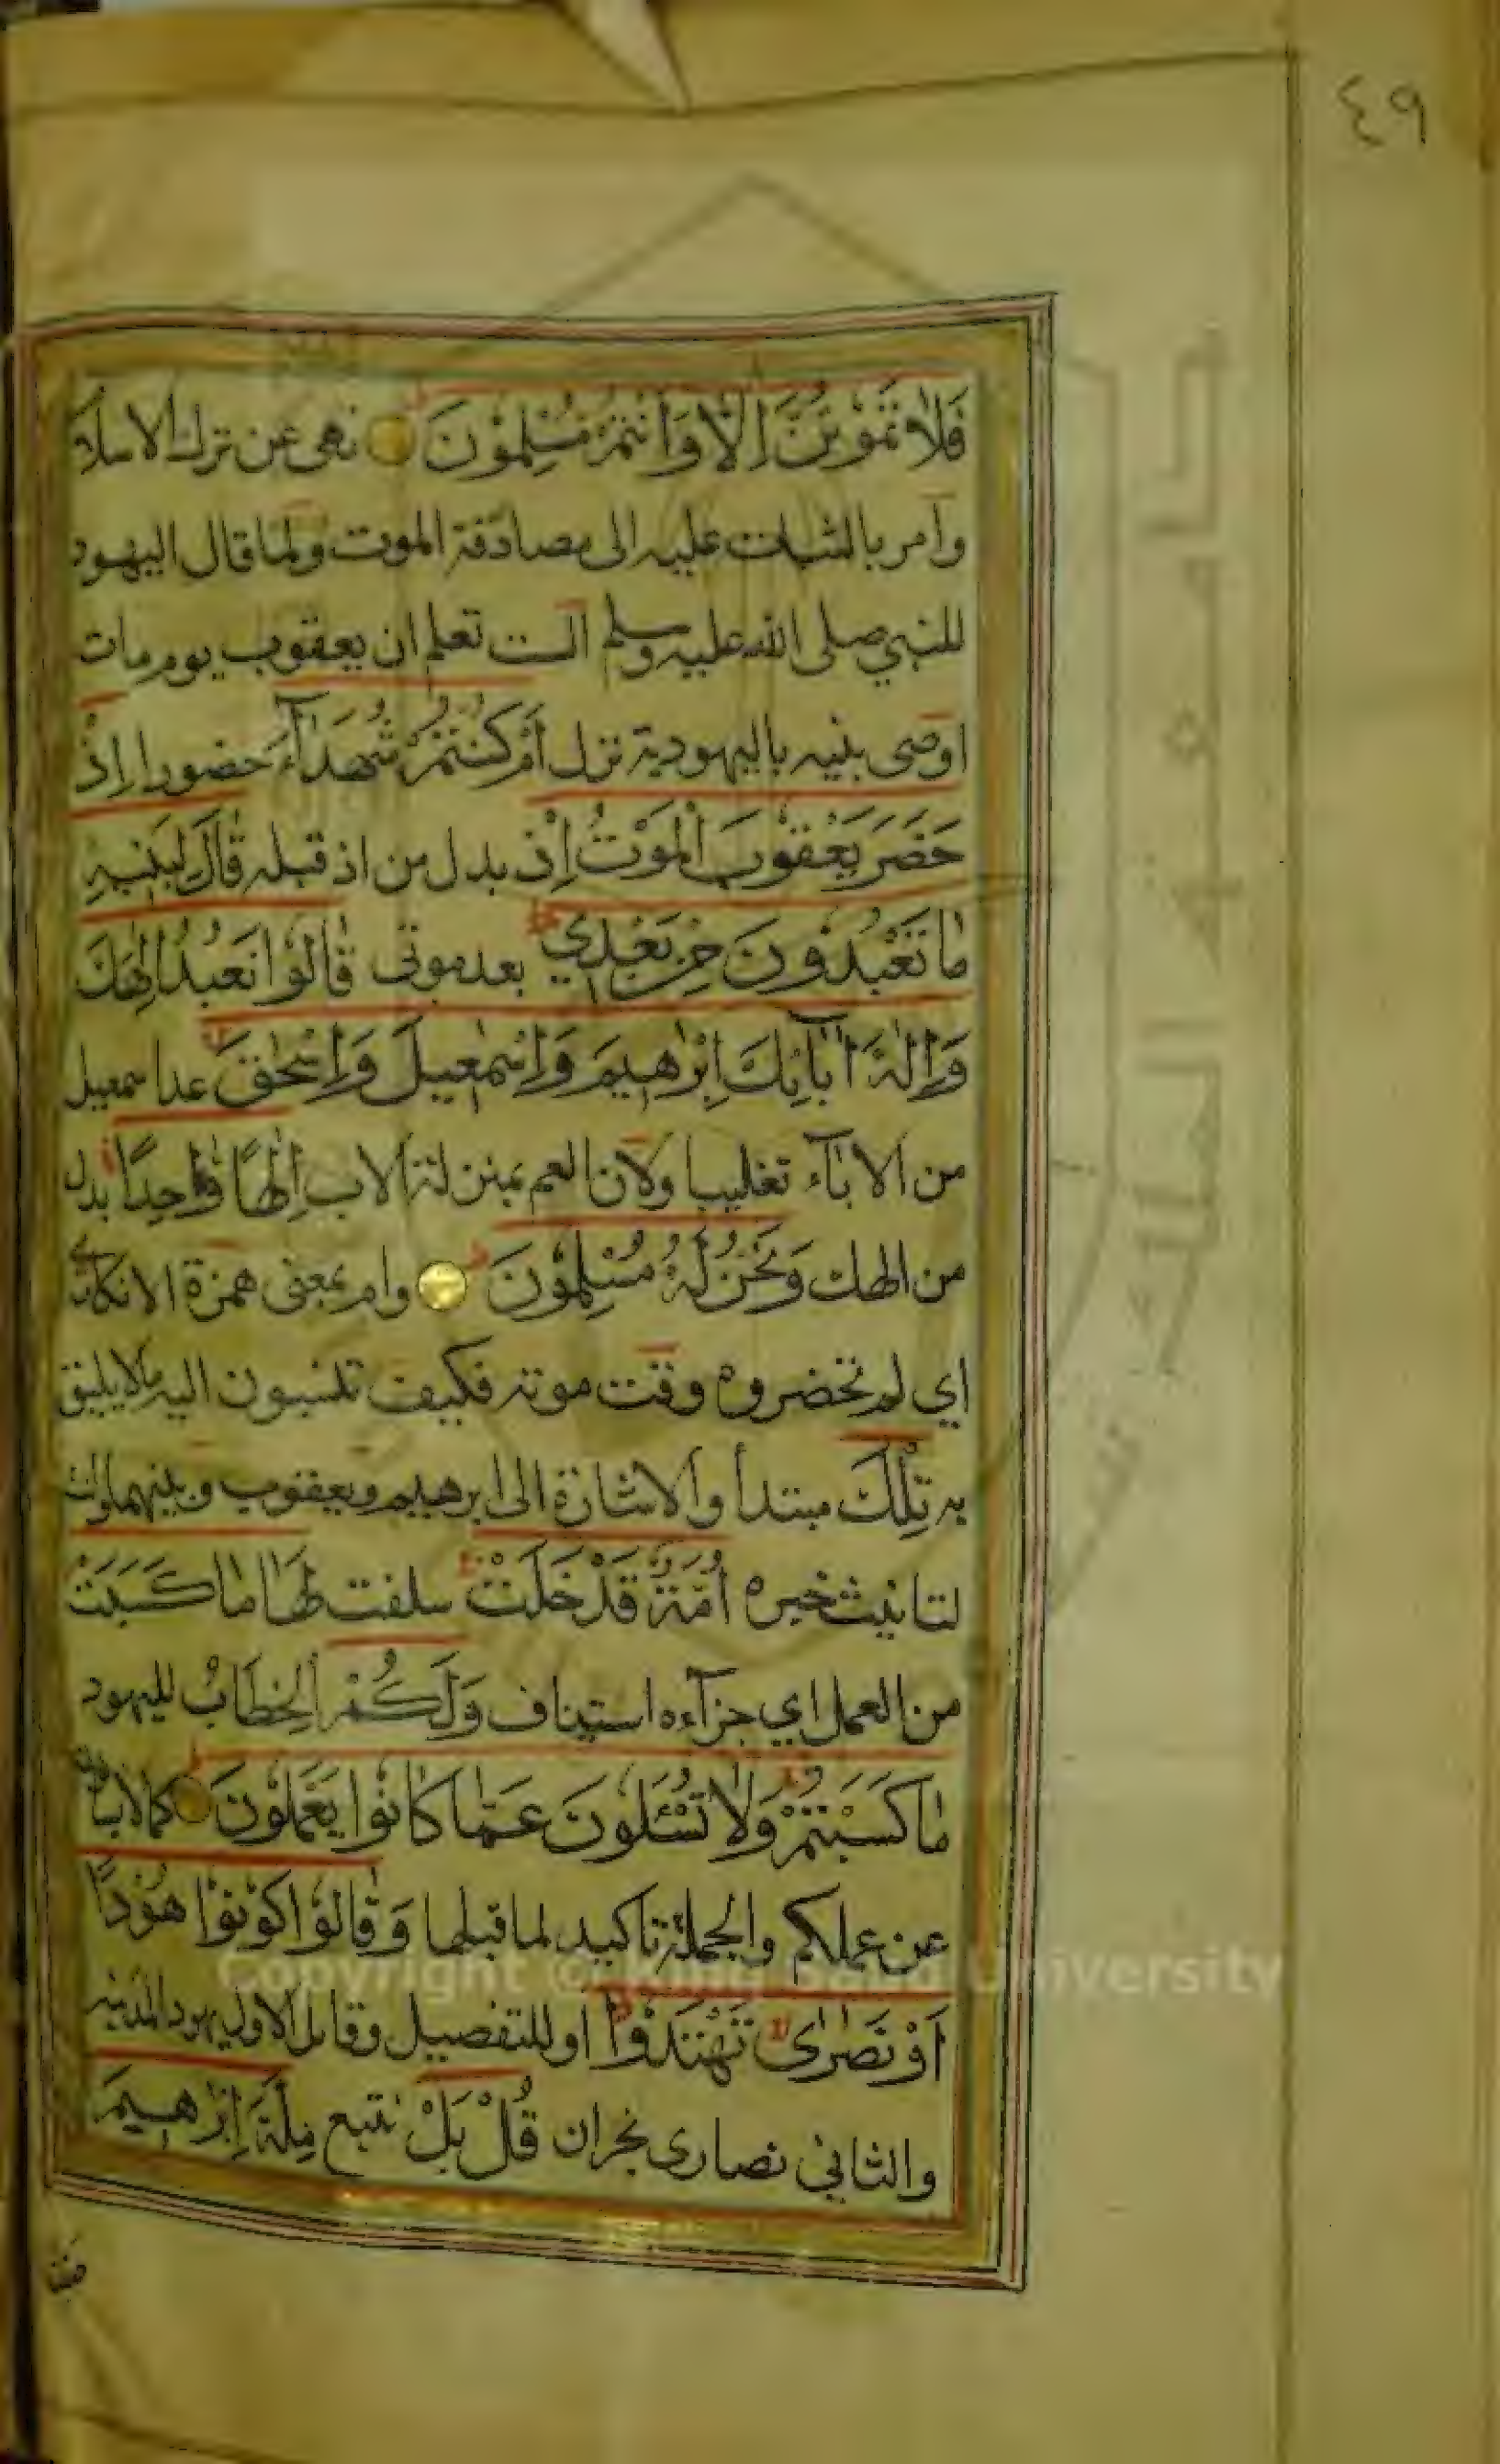 ٤٩
فَلَا تَمُوتُنَّ اِلَّا وَاَنْتُمْ مُسْلِمُوْنَ نهى عن ترك الاسلام
وامر بالثبات عليه الى مصادفة الموت ولما قال اليهود
للنبي صلى الله عليه وسلم الست تعلم ان يعقوب يوم مات
اوصى بنيه باليهودية نزل اَمْ كُنْتُمْ شُهَدَآءَ حضورا اِذْ
حَضَرَ يَعْقُوْبَ الْمَوْتُ اِذْ بدل من اذ قبله قَالَ لِبَنِيْهِ
مَا تَعْبُدُوْنَ مِنْ بَعْدِيْ بعد موتى قَالُوْا نَعْبُدُ اِلٰهَكَ
وَاِلٰهَ اٰبَآئِكَ اِبْرٰهِيْمَ وَاِسْمٰعِيْلَ وَاِسْحٰقَ عد اسمعيل
من الاباء تغليبا ولان العم بمنزلة الاب اِلٰهًا وَاحِدًا بدل
من الهك وَنَحْنُ لَهُ مُسْلِمُوْنَ وام بمعنى همزة الانكار
اي لم تحضروه وقت موته فكيف تنسبون اليه مالا يليق
به تِلْكَ مبتدأ والاشارة الى ابرهيم ويعقوب وبنيهما وانث
لتانيث خبره اُمَّةٌ قَدْ خَلَتْ سلفت لَهَا مَا كَسَبَتْ
من العمل اي جزآءه استيناف وَلَكُمْ الخِطَابُ لليهود
مَا كَسَبْتُمْ وَلَا تُسْئَلُوْنَ عَمَّا كَانُوْا يَعْمَلُوْنَ كما لايسألون
عن عملكم والجملة تاكيد لما قبلها وَقَالُوْا كُوْنُوْا هُوْدًا
اَوْ نَصٰرٰى تَهْتَدُوْا او للتفصيل وقائل الاول يهود المدينة
والثاني نصارى نجران قُلْ بَلْ نتبع مِلَّةَ اِبْرٰهِيْمَ
Copyright © King Saud University